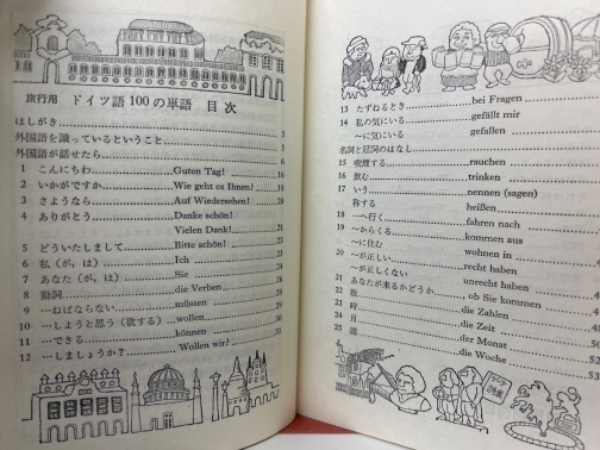 旅行用 ドイツ語100の単語 目次
はしがき 3
外国語を識っているということ 5
外国語が話せたら 6
1 こんにちわ Guten Tag! 16
2 いかがですか Wie geht es Ihnen? 18
3 さようなら Auf Wiedersehen! 20
4 ありがとう Danke schön!
Vielen Dank! 21
5 どういたしまして Bitte schön! 23
6 私(が,は) Ich 24
7 あなた(が,は) Sie
8 動詞 die Verben
9 …ねばならない müssen
10 …しようと思う(欲する) wollen
11 …できる können
12 …しましょうか? Wollen wir?
13 たずねるとき bei Fragen
14 私の気にいる gefällt mir
〜に気にいる gefallen
名詞と冠詞のはなし
15 喫煙する rauchen
16 飲む trinken
17 いう nennen (sagen)
称する heißen
18 …へ行く fahren nach
19 〜からくる kommen aus
〜に住む wohnen in
20 〜が正しい recht haben
〜が正しくない unrecht haben
21 あなたが来るかどうか , ob Sie kommen
22 数 die Zahlen
23 時 die Zeit
24 月 der Monat
25 週 die Woche 53